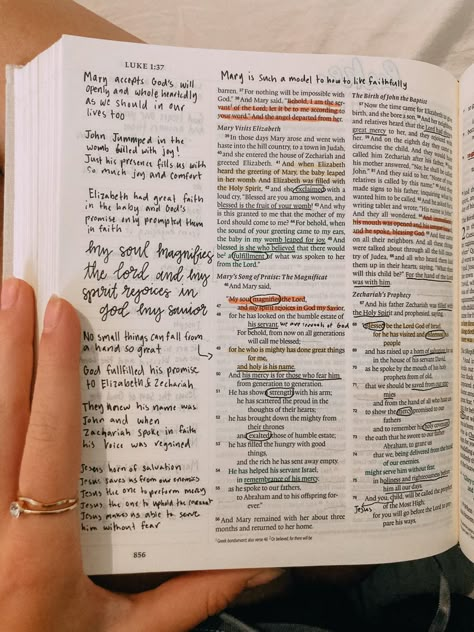 LUKE 1:37
Mary accepts God's will
openly and whole heartedly
as we should in our
lives too
John Jummped in the
womb filled with joy!
Just his presence fills us with
so much joy and comfort
Elizabeth had great faith
in the baby and God's
promise only prompted them
in faith
my soul magnifies
the lord and my
spirit rejoices in
god my savior
No small things can fall from
a hand so great
God fullfilled his promise
to Elizabeth & Zechariah
They knew his name was
John and when
Zachariah spoke in faith
his voice was regained
Jesus horn of salvation
Jesus saves us from our enemies
Jesus the one to perform mercy
Jesus the one to uphold the covenant
Jesus makes us able to serve
him without fear
856
Mary is such a model to how to live faithfully
barren. 37 For nothing will be impossible with
God." 38 And Mary said, "Behold, I am the ser-
vant of the Lord; let it be to me according to
your word." And the angel departed from her.
Mary Visits Elizabeth
39 In those days Mary arose and went with
haste into the hill country, to a town in Judah,
40 and she entered the house of Zechariah and
greeted Elizabeth. 41 And when Elizabeth
heard the greeting of Mary, the baby leaped
in her womb. And Elizabeth was filled with
the Holy Spirit, 42 and she exclaimed with a
loud cry, "Blessed are you among women, and
blessed is the fruit of your womb! 43 And why
is this granted to me that the mother of my
Lord should come to me? 44 For behold, when
the sound of your greeting came to my ears,
the baby in my womb leaped for joy. 45 And
blessed is she who believed that there would
be a fulfillment of what was spoken to her
from the Lord."
Mary's Song of Praise: The Magnificat
46 And Mary said,
"My soul magnifies the Lord,
47 and my spirit rejoices in God my Savior,
48 for he has looked on the humble estate of
his servant. we are servants of God
For behold, from now on all generations
will call me blessed;
49 for he who is mighty has done great things
for me,
and holy is his name.
50 And his mercy is for those who fear him
from generation to generation.
51 He has shown strength with his arm;
he has scattered the proud in the
thoughts of their hearts;
52 he has brought down the mighty from
their thrones
and exalted those of humble estate;
53 he has filled the hungry with good
things,
and the rich he has sent away empty.
54 He has helped his servant Israel,
in remembrance of his mercy,
55 as he spoke to our fathers,
to Abraham and to his offspring for-
ever."
56 And Mary remained with her about three
months and returned to her home.
The Birth of John the Baptist
57 Now the time came for Elizabeth to give
birth, and she bore a son. 58 And her
relatives heard that the Lord had
great mercy to her, and they rejoiced
her. 59 And on the eighth day they
circumcise the child. And they would have
called him Zechariah after his father,
his mother answered, "No; he shall be called
John." 61 And they said to her, "None of
your relatives is called by this name." 62 And they
made signs to his father, inquiring what
wanted him to be called. 63 And he asked for
writing tablet and wrote, "His name is John."
And they all wondered. 64 And immediately
his mouth was opened and his tongue
and he spoke, blessing God. 65 And fear
on all their neighbors. And all these things
were talked about through all the hill
try of Judea, 66 and all who heard them
them up in their hearts, saying, "What then
will this child be?" For the hand of the Lord
was with him.
Zechariah's Prophecy
67 And his father Zechariah was filled with
the Holy Spirit and prophesied, saying,
68 "Blessed be the Lord God of Israel,
for he has visited and redeemed his
people
69 and has raised up a horn of salvation for us
in the house of his servant David,
70 as he spoke by the mouth of his holy
prophets from of old,
71 that we should be saved from our
enemies
and from the hand of all who hate us;
72 to show the mercy promised to our
fathers
and to remember his holy covenant,
73 the oath that he swore to our father
Abraham, to grant us
74 that we, being delivered from the hand
of our enemies,
might serve him without fear,
75 in holiness and righteousness before
him all our days.
76 And you, child, will be called the prophet
Jesus
of the Most High;
for you will go before the Lord to
pare his ways,